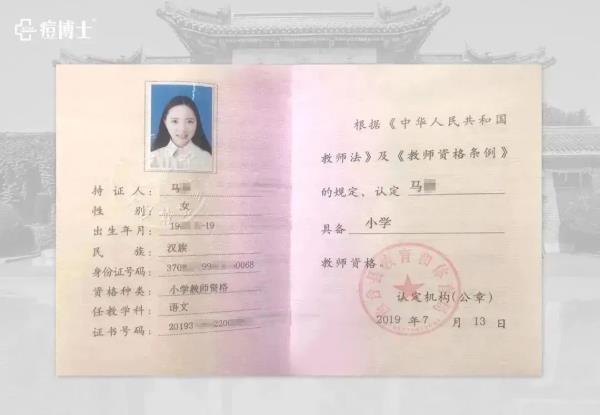 痘博士
持 证 人：马
性 别：女
出生年月：19 -19
民 族：汉族
身份证号码：370 99 0068
资格种类：小学教师资格
任教学科：语文
证书号码：20193 220
根据《中华人民共和国
教师法》及《教师资格条例》
的规定，认定 马
具备 小学
教师资格。
认定机构(公章)
2019 年 7 月 13 日